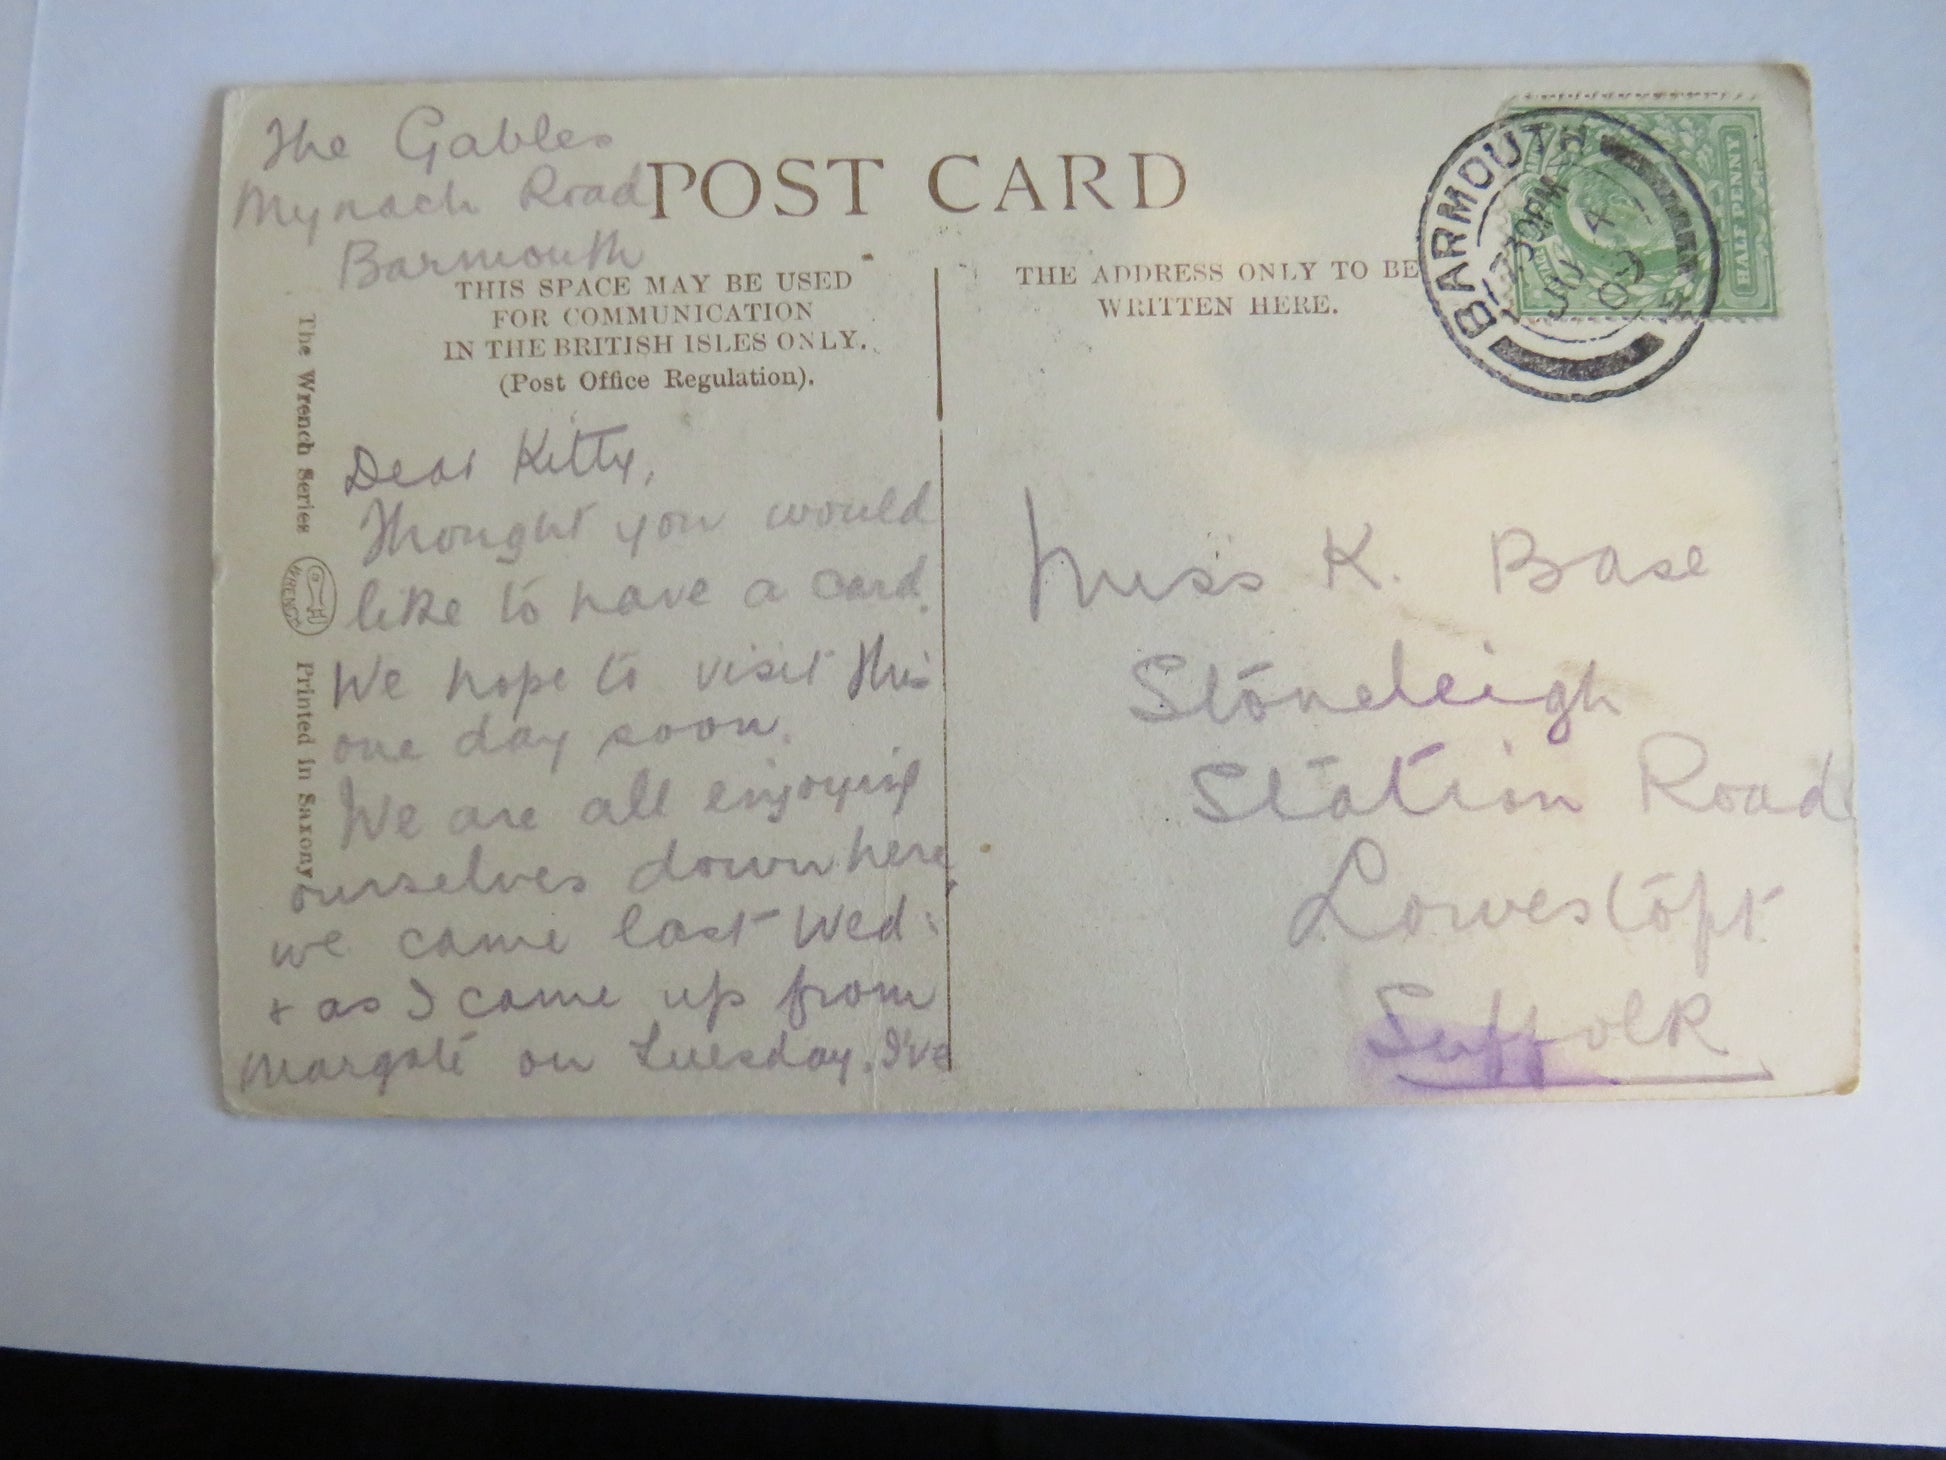 The Gables
Mynach Road
Barmouth
POST CARD
THIS SPACE MAY BE USED
FOR COMMUNICATION
IN THE BRITISH ISLES ONLY.
(Post Office Regulation).
THE ADDRESS ONLY TO BE
WRITTEN HERE.
BARMOUTH
7 30 PM
4
09
HALF PENNY
The Wrench Series
WRENCH
Printed in Saxony
Dear Kitty,
Thought you would
like to have a card.
We hope to visit this
one day soon.
We are all enjoying
ourselves down here,
we came last Wed:
& as I came up from
Margate on Tuesday. I've
Miss K. Base
Stoneleigh
Station Road
Lowestoft
Suffolk